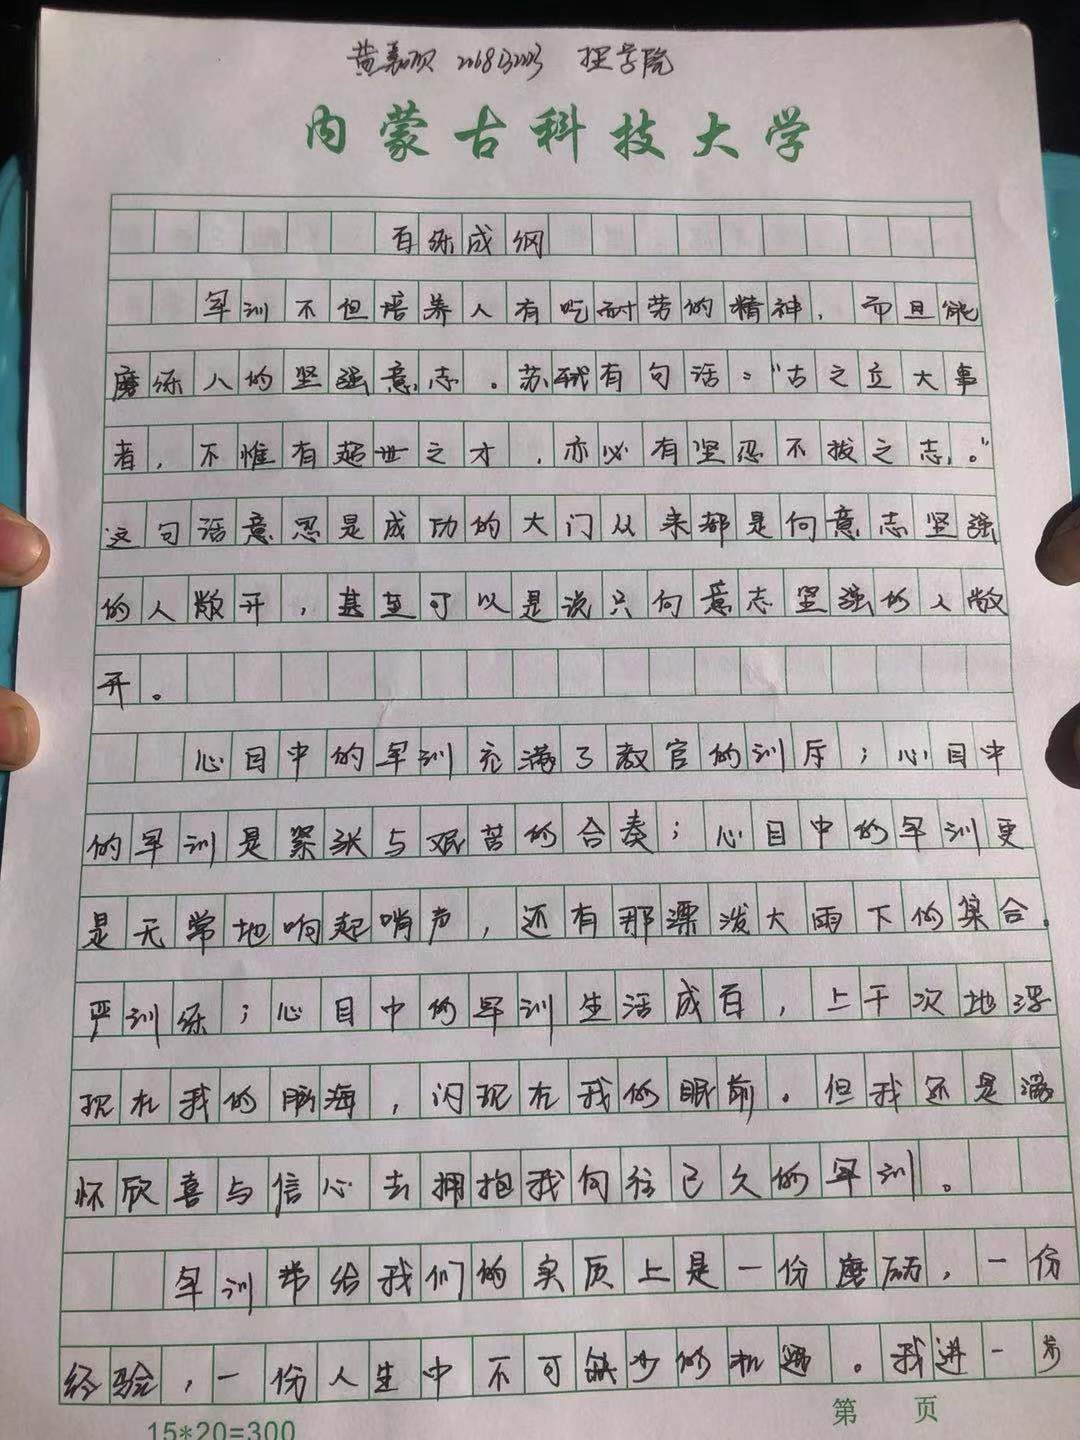 黄 理学院
内蒙古科技大学
百练成纲
军训不但培养人有吃耐劳的精神，而且能
磨练人的坚强意志。苏轼有句话："古之立大事
者，不惟有超世之才，亦必有坚忍不拔之志。"
这句话意思是成功的大门从来都是向意志坚强
的人敞开，甚至可以是说只向意志坚强的人敞
开。
心目中的军训充满了教官的训斥；心目中
的军训是紧张与艰苦的合奏；心目中的军训更
是无常地响起哨声，还有那漂泼大雨下的集合
严训练；心目中的军训生活成百，上千次地浮
现在我的脑海，闪现在我的眼前。但我还是满
怀欣喜与信心去拥抱我向往已久的军训。
军训带给我们的实质上是一份磨砺，一份
经验，一份人生中不可缺少的机遇。我进一步
15*20=300
第 页